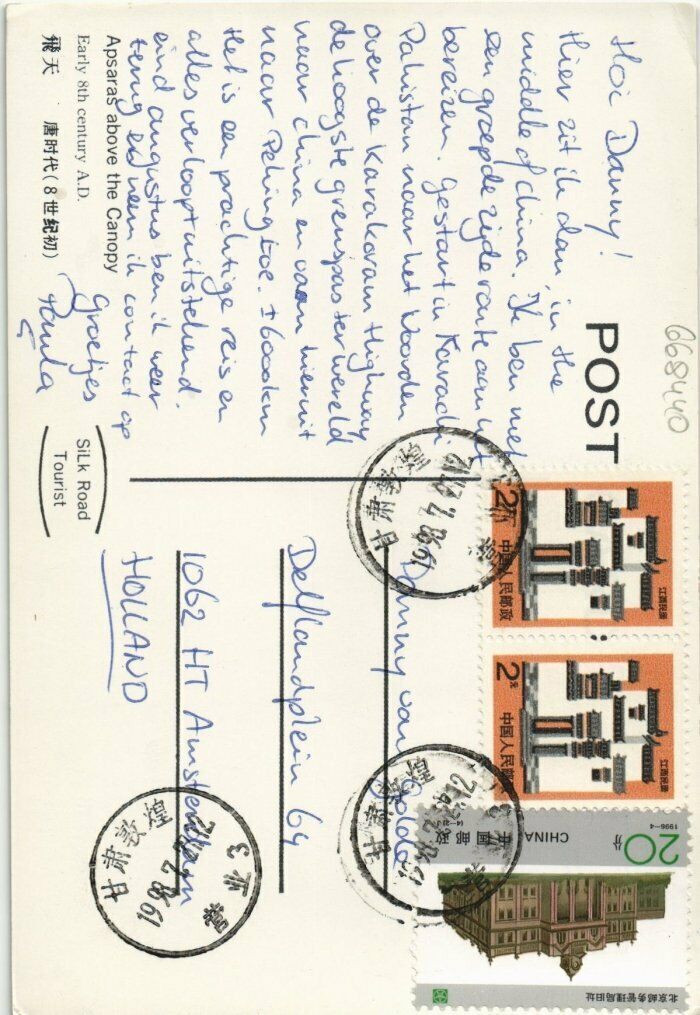 Hoi Danny!
Hier zit ik dan, in the
middle of China. Ik ben met
een groep de zijderoute aan het
bereizen. Gestart in Karachi
Pakistan naar het Noorden
over de Karakoram Highway
de hoogste grenspas ter wereld
naar China en van hieruit
naar Peking toe. ± 6000 km
Het is een prachtige reis en
alles verloopt uitstekend.
eind augustus ben ik weer
terug en neem ik contact op
Groetjes
Paula
Apsaras above the Canopy
Early 8th century A.D.
飛天 · 唐时代(8世纪初)
POST
668440
SiLk Road
Tourist
Danny van
Delflandplein 64
1062 HT Amsterdam
HOLLAND
2元
中国人民邮政
江西民居
2元
中国人民邮政
江西民居
20分
CHINA
中国邮政
1996-4
北京邮务管理局旧址
甘肃敦煌
1998.7.
12
甘肃敦煌
1998.7.
12
3
甘肃敦煌
1998.7.
12
3